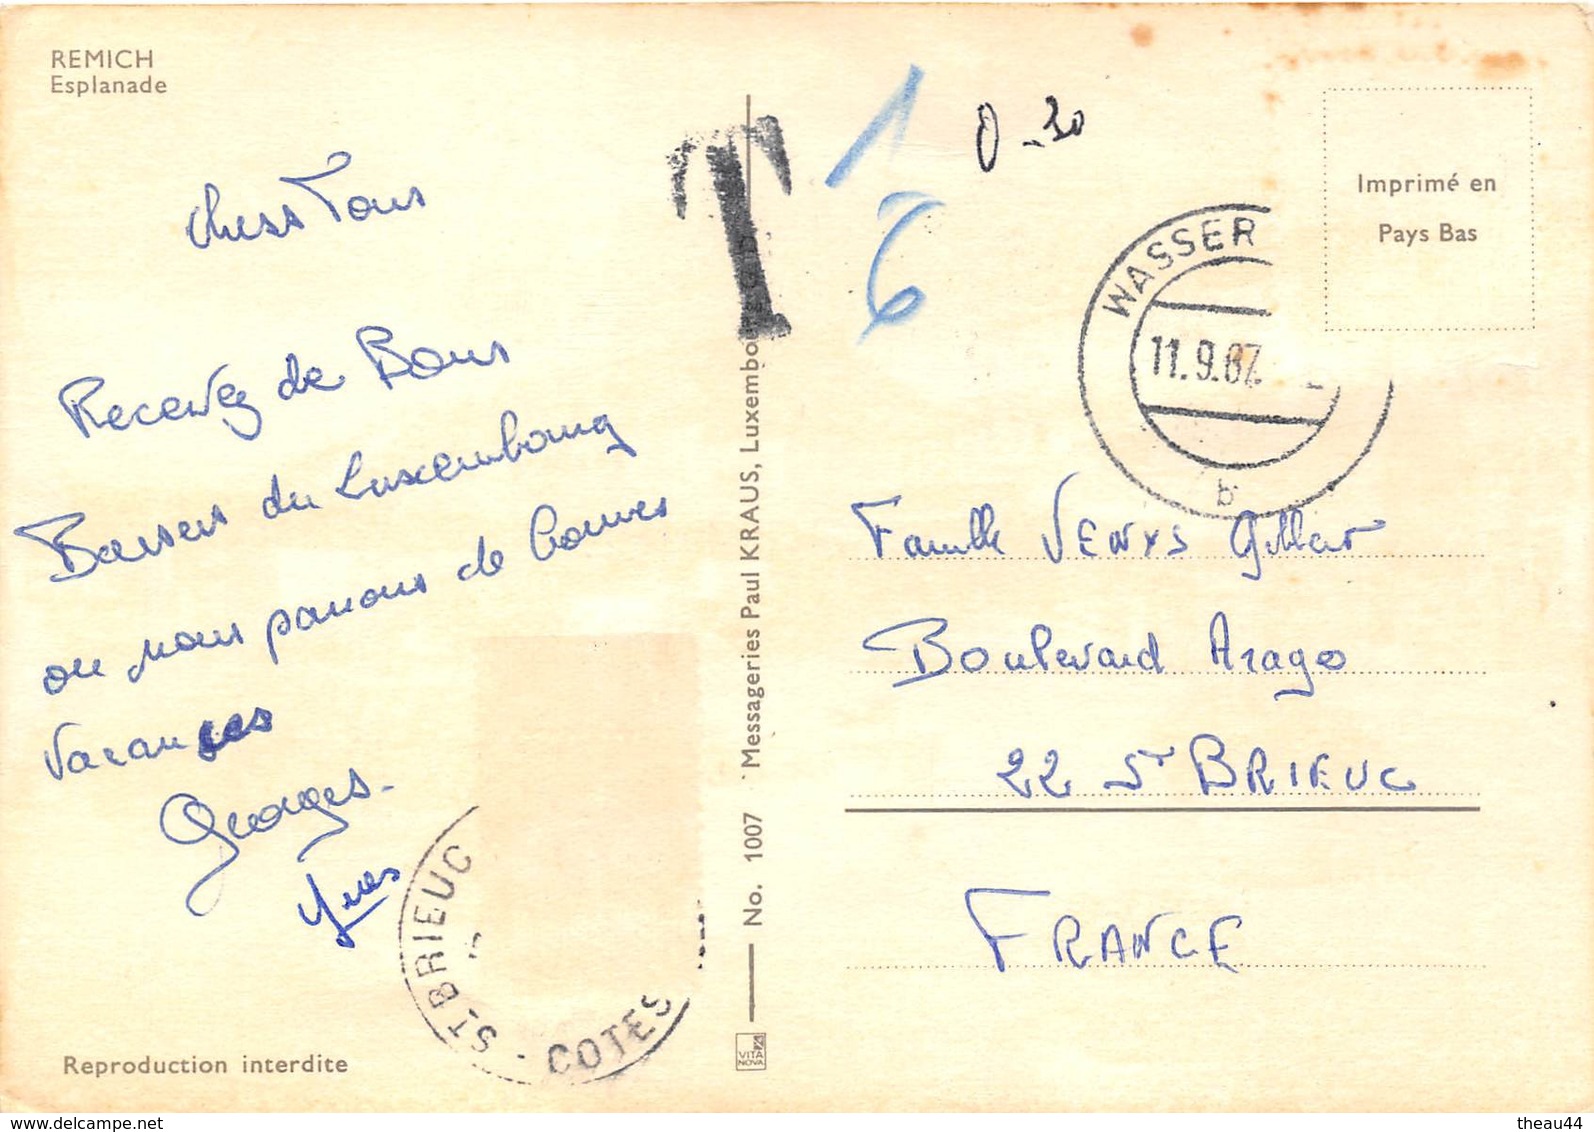 REMICH
Esplanade
Chers Tous
Recevez de Bons
Baisers du Luxembourg
ou nous passons de bonnes
vacances
Georges.
Yves
Reproduction interdite
No. 1007 Messageries Paul KRAUS, Luxembourg
VITA
NOVA
T
1
6
0.30
Imprimé en
Pays Bas
WASSER
11.9.67
b
Famille VENYS Gilbert
Boulevard Arago
22 St BRIEUC
FRANCE
ST BRIEUC - COTES
delcampe.net
theau44